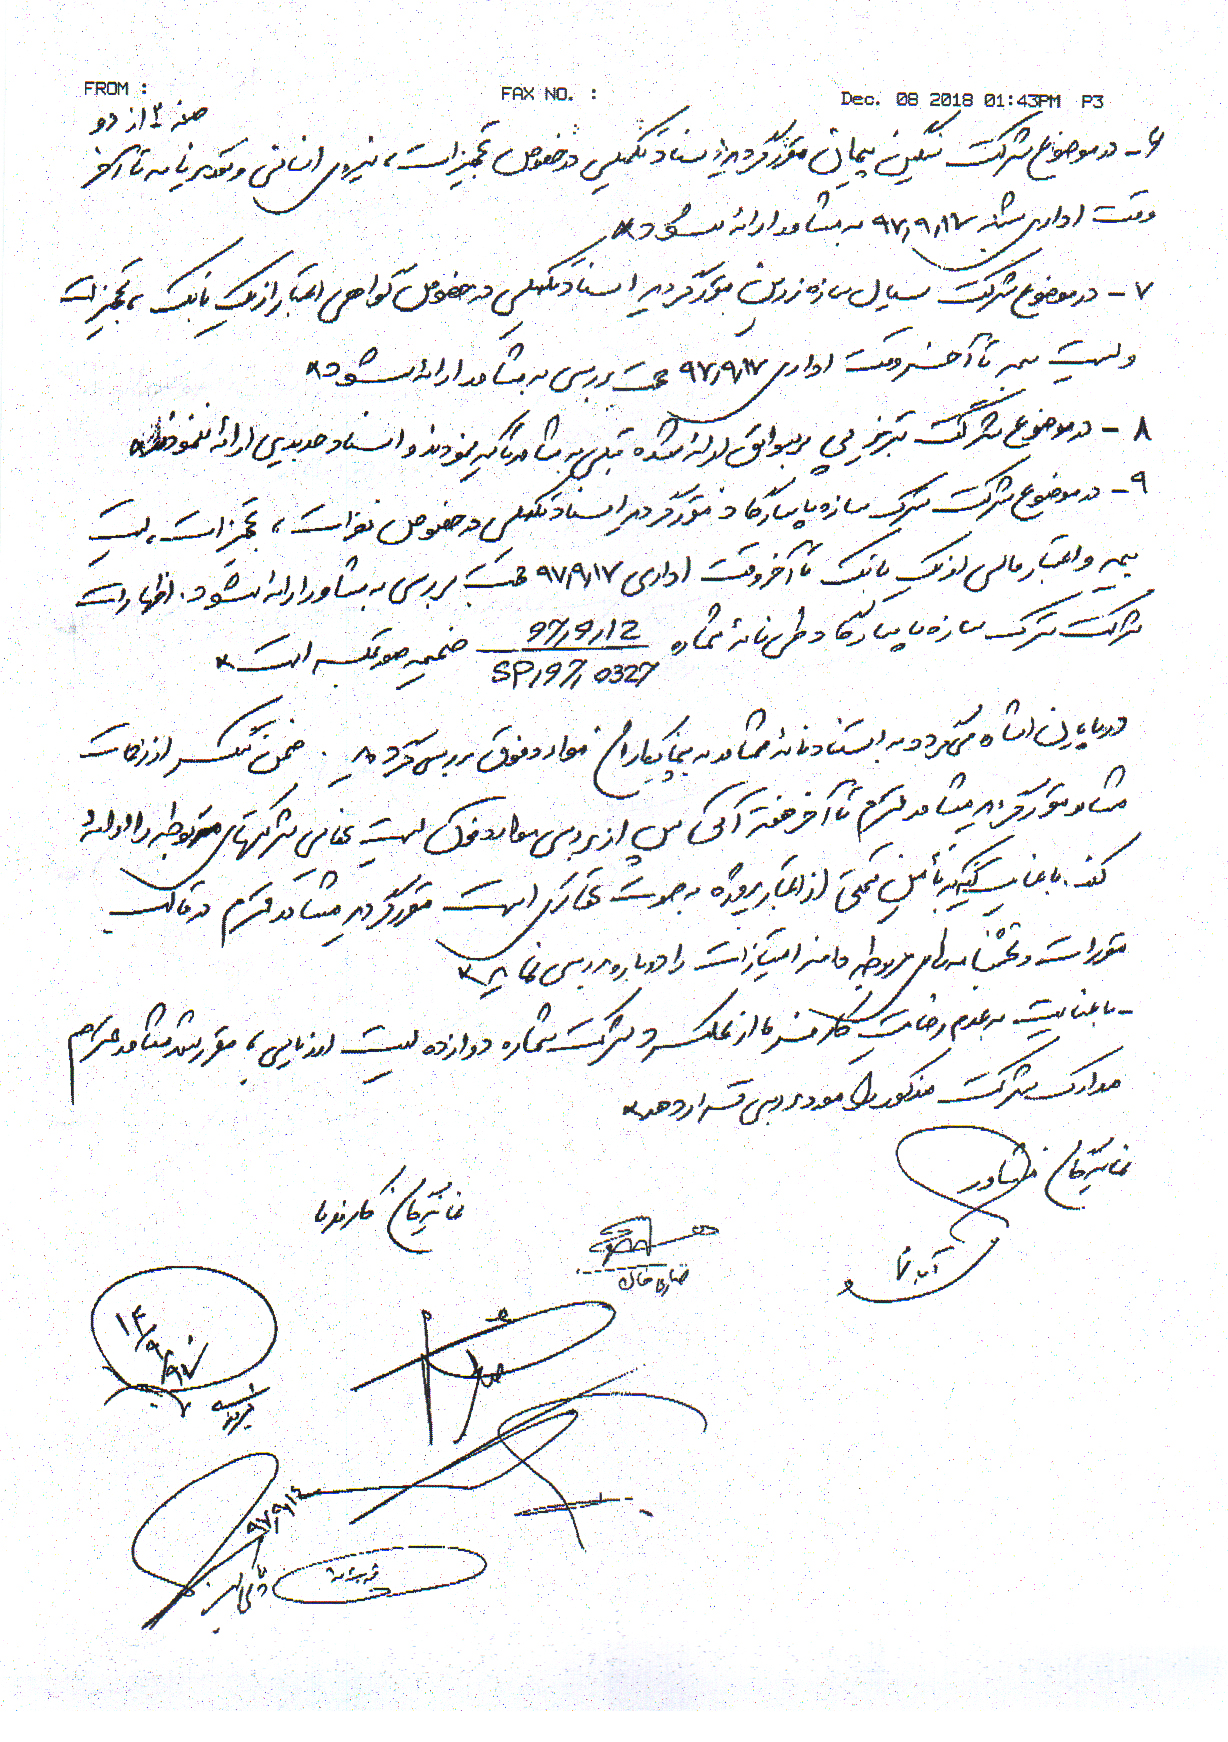 FROM :
FAX NO. :
Dec. 08 2018 01:43PM P3
صفحه ۲ از دو
۶- در موضوع شرکت نگین پیمان مقرر گردید اسناد تکمیلی در خصوص تجهیزات، نیروی انسانی و تقدیرنامه تا آخر
وقت اداری شنبه ۹۷٫۹٫۱۷ به مشاور ارائه شود
۷- در موضوع شرکت سیال سازه زرین مقرر گردید اسناد تکمیلی در خصوص گواهی اعتبار از یک بانک، تجهیزات
و لیست بیمه تا آخر وقت اداری ۹۷٫۹٫۱۷ جهت بررسی به مشاور ارائه شود
۸- در موضوع شرکت تبریز پی بر سوابق ارائه شده قبلی به مشاور تاکید نمودند و اسناد جدیدی ارائه ننمودند
۹- در موضوع شرکت سترگ سازه پاسارگاد مقرر گردید اسناد تکمیلی در خصوص نفرات، تجهیزات، لیست
بیمه و اعتبار مالی از یک بانک تا آخر وقت اداری ۹۷٫۹٫۱۷ جهت بررسی به مشاور ارائه شود. اظهارات
شرکت سترگ سازه پاسارگاد طی نامه شماره SP,97,0327 97,9,12 ضمیمه صورتجلسه است
در پایان اشاره می‌گردد به استناد نامه مشاور به پیمانکاران موارد فوق بررسی گردید. ضمن تشکر از زحمات
مشاور مقرر گردید مشاور محترم تا آخر هفته آتی پس از بررسی موارد فوق لیست تمامی شرکتهای مربوطه را ارائه
کند. با عنایت اینکه تأمین بخشی از اعتبار پروژه به صورت است مقرر گردید مشاور محترم در قالب
مقررات و بخشنامه‌های مربوطه دامنه امتیازات را دوباره بررسی نماید
- با عنایت به عدم رضایت کارفرما از عملکرد شرکت شماره دوازده لیست ارزیابی، مقرر شد مشاور محترم
مدارک شرکت مذکور را مورد بررسی قرار دهد
نمایندگان مشاور
نمایندگان کارفرما
۱۴/۹/۹۷
۹۷٫۹٫۱۴